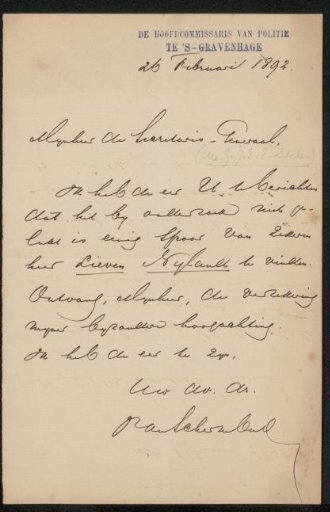 DE HOOFDCOMMISSARIS VAN POLITIE
TE 'S-GRAVENHAGE
26 Februari 1892.
Mijnheer de Secretaris-Generaal,
Ik heb de eer U te berichten
dat het bij onderzoek niet ge-
lukt is eenig spoor van zekeren
heer Lieven Nylandt te vinden.
Ontvang, Mijnheer, de verzekering
mijner byzondere hoogachting.
Ik heb de eer te zijn,
Uw dw. dr.